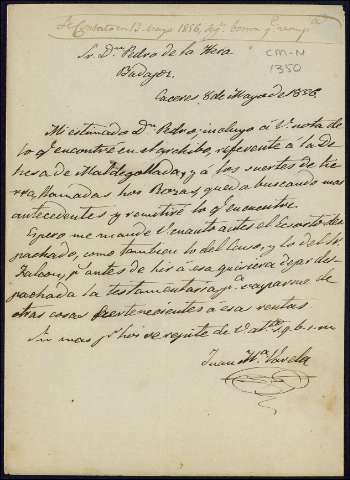 Se Contestó en 13 mayo 1856,
Sr. Dn. Pedro de la Hera
CM-N
Badajoz.
1350
Caceres, 8 de Mayo de 1856.
Mi estimado Dn. Pedro, incluyo á V. nota de
lo q. encontré en el archibo, referente á la De
hesa de Maldegollada, y á las suertes de tie
rra, llamadas hos Bozas, queda buscando mas
antecedentes y remitiré lo q. encuentre.
Espero me mande V. cuanto antes el Escrito des
pachado, como tambien lo del Censo, y lo del Sr.
Falcon, p. antes de hir a esa quisiera dejar des
pachada la testamentaria, p. ocuparme de
otras cosas pertenecientes á esas rentas
Sin mas p. hoi se repite de V. at. S. q. b. s. m
Juan Ma. Varela